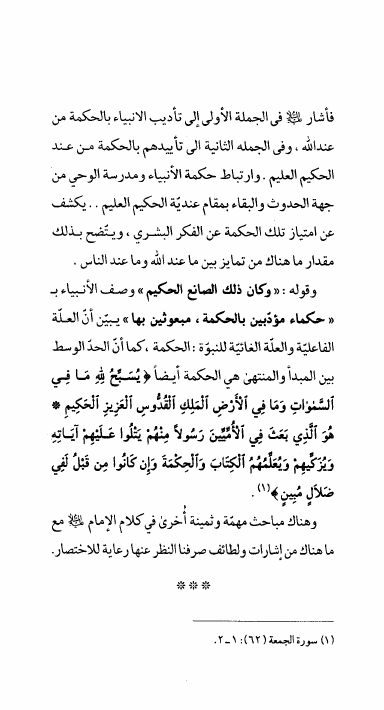 فأشار ﷺ فى الجملة الأولى إلى تأديب الانبياء بالحكمة من
عندالله ، وفى الجمله الثانية الى تأييدهم بالحكمة مـن عـند
الحكيم العليم . وارتباط حكمة الأنبياء ومدرسة الوحي من
جهة الحدوث والبقاء بمقام عنديّة الحكيم العليم . . يكشف
عن امتياز تلك الحكمة عن الفكر البشري ، ويتّضح بـذلك
مقدار ما هناك من تمايز بين ما عند الله وما عند الناس .
وقوله : « وكان ذلك الصانع الحكيم » وصـف الأنـبياء بـ
« حكماء مؤدّبين بالحكمة ، مبعوثين بها » يـبيّن أنّ العـلّة
الفاعليّة والعلّة الغائيّة للنبوّة : الحكمة ، كما أنّ الحدّ الوسط
بين المبدأ والمنتهىٰ هي الحكمة أيـضاً ﴿ يُسَـبِّحُ لِلّٰهِ مَـا فِـي
ٱلسَّمٰوَاتِ وَمَا فِي ٱلْأَرْضِ ٱلْمَلِكِ ٱلْقُدُّوسِ ٱلْعَزِيزِ ٱلْحَكِيمِ *
هُوَ ٱلَّذِي بَعَثَ فِي ٱلْأُمِّيِّينَ رَسُولاً مِنْهُمْ يَتْلُوا عَـلَيْهِمْ آيَـاتِهِ
وَيُزَكِّيهِمْ وَيُعَلِّمُهُمُ ٱلْكِتَابَ وَٱلْحِكْمَةَ وَإِن كَانُوا مِن قَبْلُ لَفِي
ضَلاَلٍ مُبِينٍ ﴾(١) .
وهناك مباحث مهمّة وثمينة أُخرىٰ في كلام الإمام ﷺ مع
ما هناك من إشارات ولطائف صرفنا النظر عنها رعاية للاختصار .
* * *
(١) سورة الجمعة (٦٢): ١ ـ ٢.